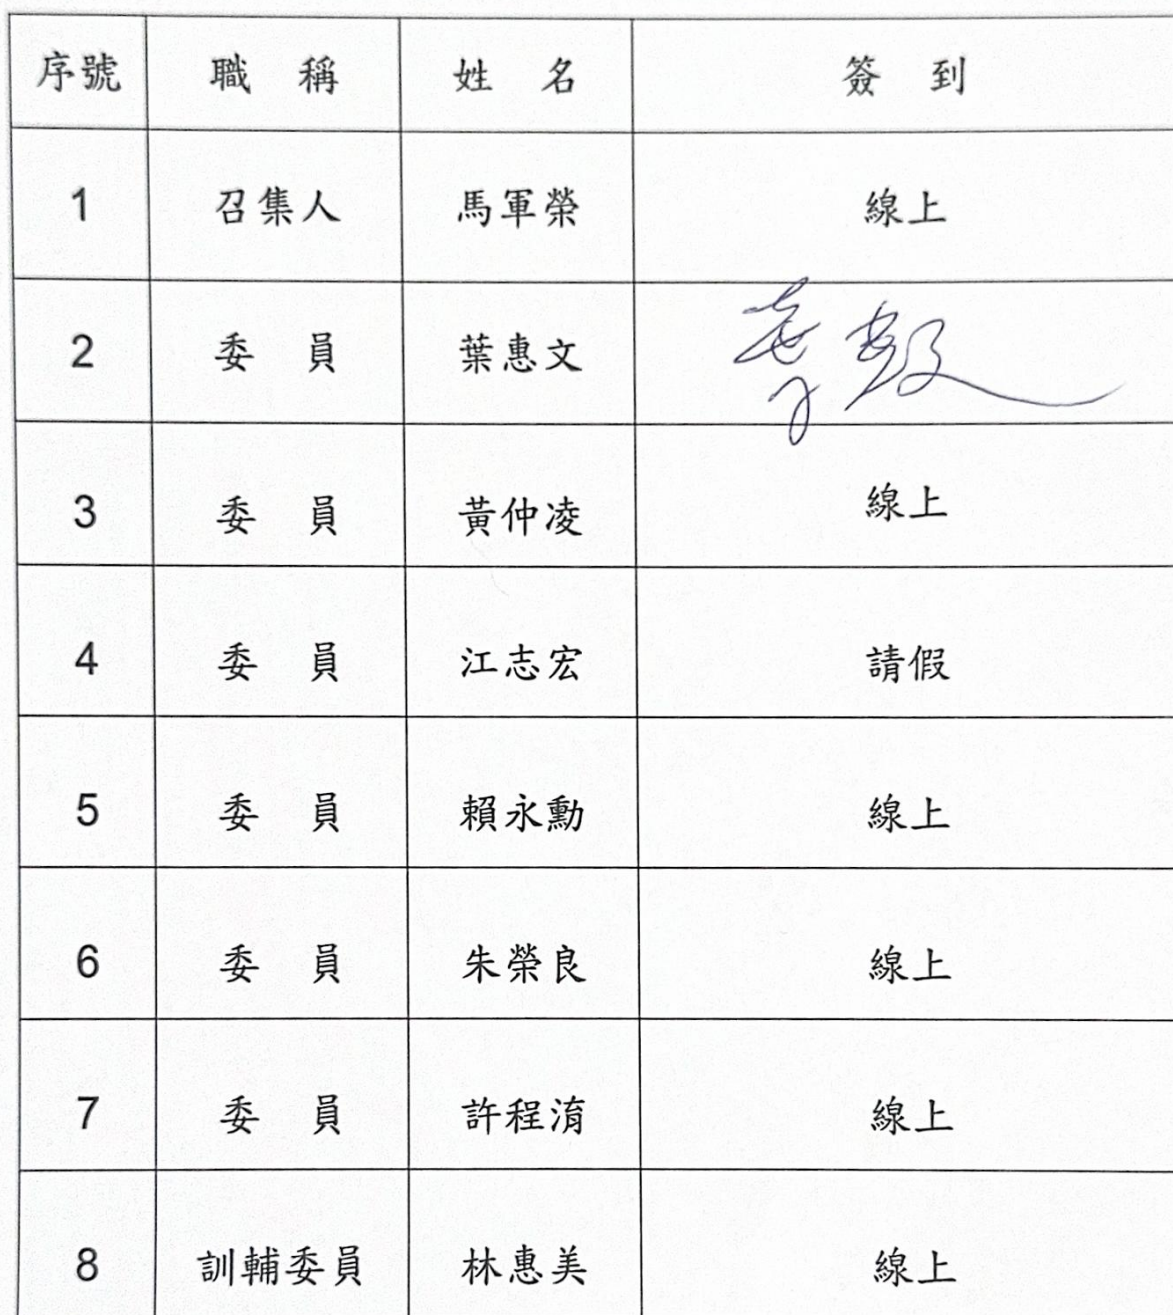 序號 職稱 姓名 簽到
1 召集人 馬軍榮 線上
2 委員 葉惠文
3 委員 黃仲凌 線上
4 委員 江志宏 請假
5 委員 賴永勳 線上
6 委員 朱榮良 線上
7 委員 許程淯 線上
8 訓輔委員 林惠美 線上